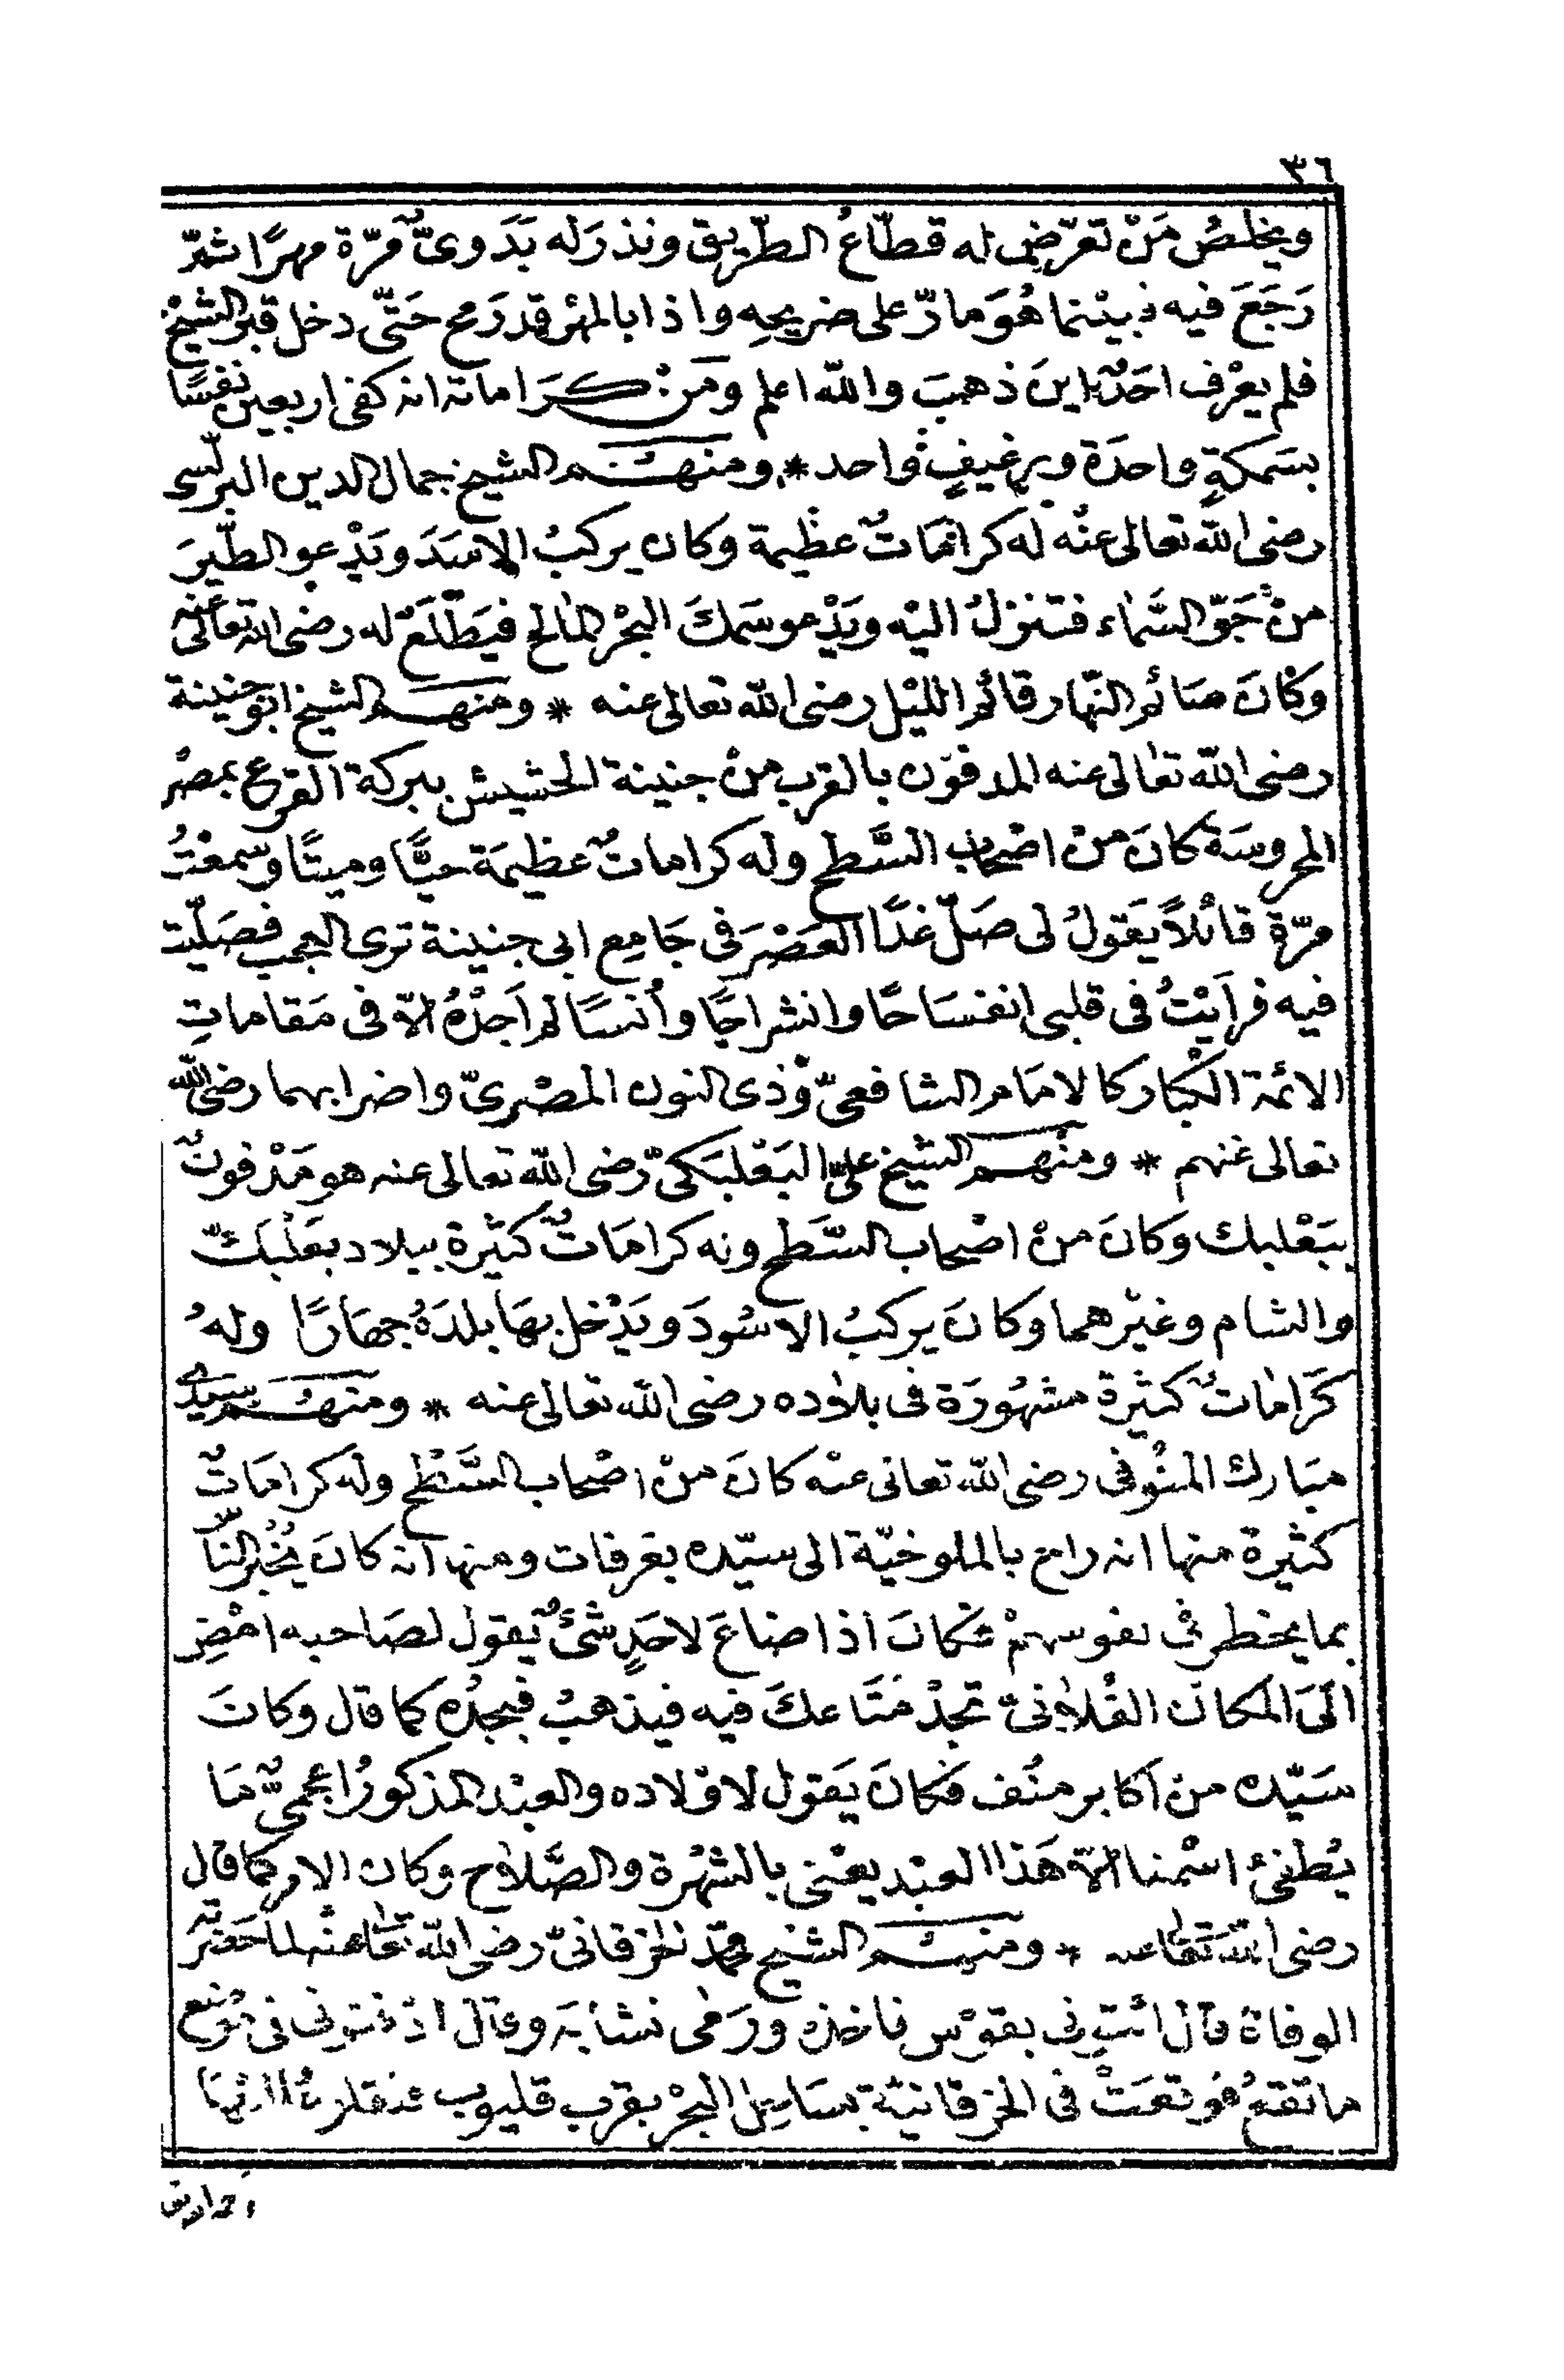 ٣٦
ويخلصُ مَنْ تعرّض له قطّاعُ الطّريق ونذرَ له بَدَوىٌّ مرّة مهرًا ثمّ
رَجَعَ فيه فبيْنما هُوَ مارّ على ضريحِه واذا بالمهْر قد رَمح حَتّى دخل قبر الشيخ
فلم يعْرف احَدٌ اينَ ذهبَ والله اعلم ومَن كَرَاماته انه كفى اربعين نفسًا
بسَمكةٍ واحدَة وبرغيفٍ واحد * ومنهم الشيخ جمال الدين البرلّسى
رضى الله تعالى عنْه له كراماتٌ عظيمة وكان يركبُ الاسَدَ ويَدْعو الطّيرَ
منْ جَوّ السَّماء فتنزلُ اليْه ويَدْعو سَمكَ البحْر المالح فيَطْلَعُ له رضى الله تعالى عنه
وكانَ صَائم النّهار قائم الليْل رضى الله تعالى عنه * ومنهم الشيخ ابو جنينة
رضى الله تعالى عنه المدفون بالقرب منْ جنينة الحشيش ببركة القرع بمصْر
المحروسَة كانَ منْ اصْحاب السَّطح وله كراماتٌ عظيمَة حيًّا وميتًا وسمعْتُ
مرّة قائلاً يَقولُ لى صَلّ غدًا العَصْرَ فى جَامع ابى جنينة ترى العجب فصَلّيت
فيه فرأيْتُ فى قلبى انفسَاحًا وانشراحًا وأنسًا لم اَجدْهُ الاّ فى مَقاماتِ
الائمّة الكبار كالامَام الشافعىّ وذى النون المصْرىّ واضرابهما رضى الله
تعالى عنهم * ومنْهم الشيخ علىّ البَعْلبَكىّ رضى الله تعالى عنه هو مَدْفونٌ
ببَعْلبك وكانَ منْ اصْحاب السَّطح وله كرامَاتٌ كثيرة ببلاد بعَلْبَكّ
والشام وغيْرهما وكانَ يركبُ الاسُودَ ويَدْخل بهَا بلدَهُ جهَارًا ولهُ
كَرَاماتٌ كثيرة مشهُورَة فى بلاده رضى الله تعالى عنه * ومنهم سيّدى
مبَارك المنُوفى رضى الله تعالى عنه كانَ منْ اصْحاب السَّطْح وله كرامَاتٌ
كثيرة منها انه راح بالملوخيّة الى سيّده بعَرفات ومنها انه كانَ يُخْبر النّاس
بما يخطر فى نفوسهمْ فكانَ اذا ضاعَ لاحَدٍ شىْءٌ يَقول لصَاحبه امْضِ
الَى المَكان الفُلاَنىّ تجدْ مَتَاعكَ فيه فيذهبُ فيجدُه كما قال وكانَ
سَيّده منْ اكابر منُف فكانَ يَقول لاوْلاده والعبْد المذكورُ اعجمىٌّ مَا
يُطفئ اسْمنا الاّ هَذا العبْد يعْنى بالشهْرة والصَّلاَح وكان الامر كما قال
رضى الله تعالى عنه * ومنهم الشيخ محمّد الخرقانىّ رضى الله تعالى عنه لما حَضَرَته
الوفاة قال ائتونى بقوْس فاخذه ورَمى نشابَه وقال ادْفنونى فى موْضع
ما تقعُ فوقعَتْ فى الخرقانيّة بسَاحل البحْر بقرب قليوب فنقلوهُ اليْهَا